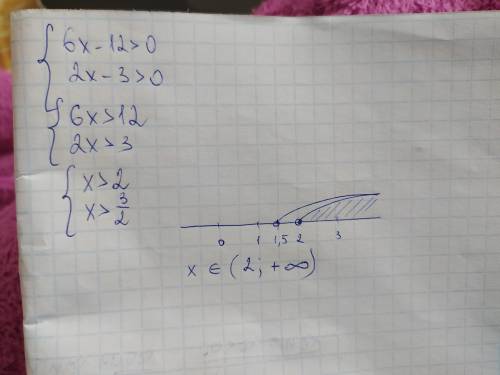 {6x-12>0
2x-3>0
{6x>12
2x>3
{x>2
x>3/2
0 1 1,5 2 3
x ∈ (2; +∞)